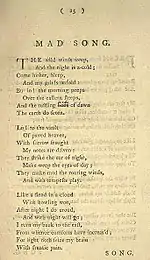 ( 15 )
MAD SONG.
THE wild winds weep,
And the night is a-cold;
Come hither, Sleep,
And my griefs unfold:
But lo! the morning peeps
Over the eastern steeps,
And the rustling of dawn
The earth do scorn.
Lo! to the vault
Of paved heaven,
With sorrow fraught
My notes are driven:
They strike the ear of night,
Make weep the eyes of day;
They make mad the roaring winds,
And with tempests play.
Like a fiend in a cloud
With howling woe,
After night I do croud,
And with night will go;
I turn my back to the east,
From whence comforts have increas'd;
For light doth seize my brain
With frantic pain.
SONG.